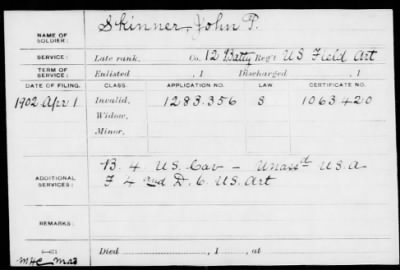 NAME OF SOLDIER: Skinner, John P.
SERVICE: Late rank, Co. 12 Batty Reg't US Field Art
TERM OF SERVICE: Enlisted , 1 Discharged , 1
DATE OF FILING. CLASS. APPLICATION NO. LAW CERTIFICATE NO.
1902 Apr 1 Invalid, 1283.356 S 1063.420
Widow,
Minor,
ADDITIONAL SERVICES: B. 4 US. Cav - Unassd U.S.A
F 4 D. C. US. Art
REMARKS:
Died , 1 , at